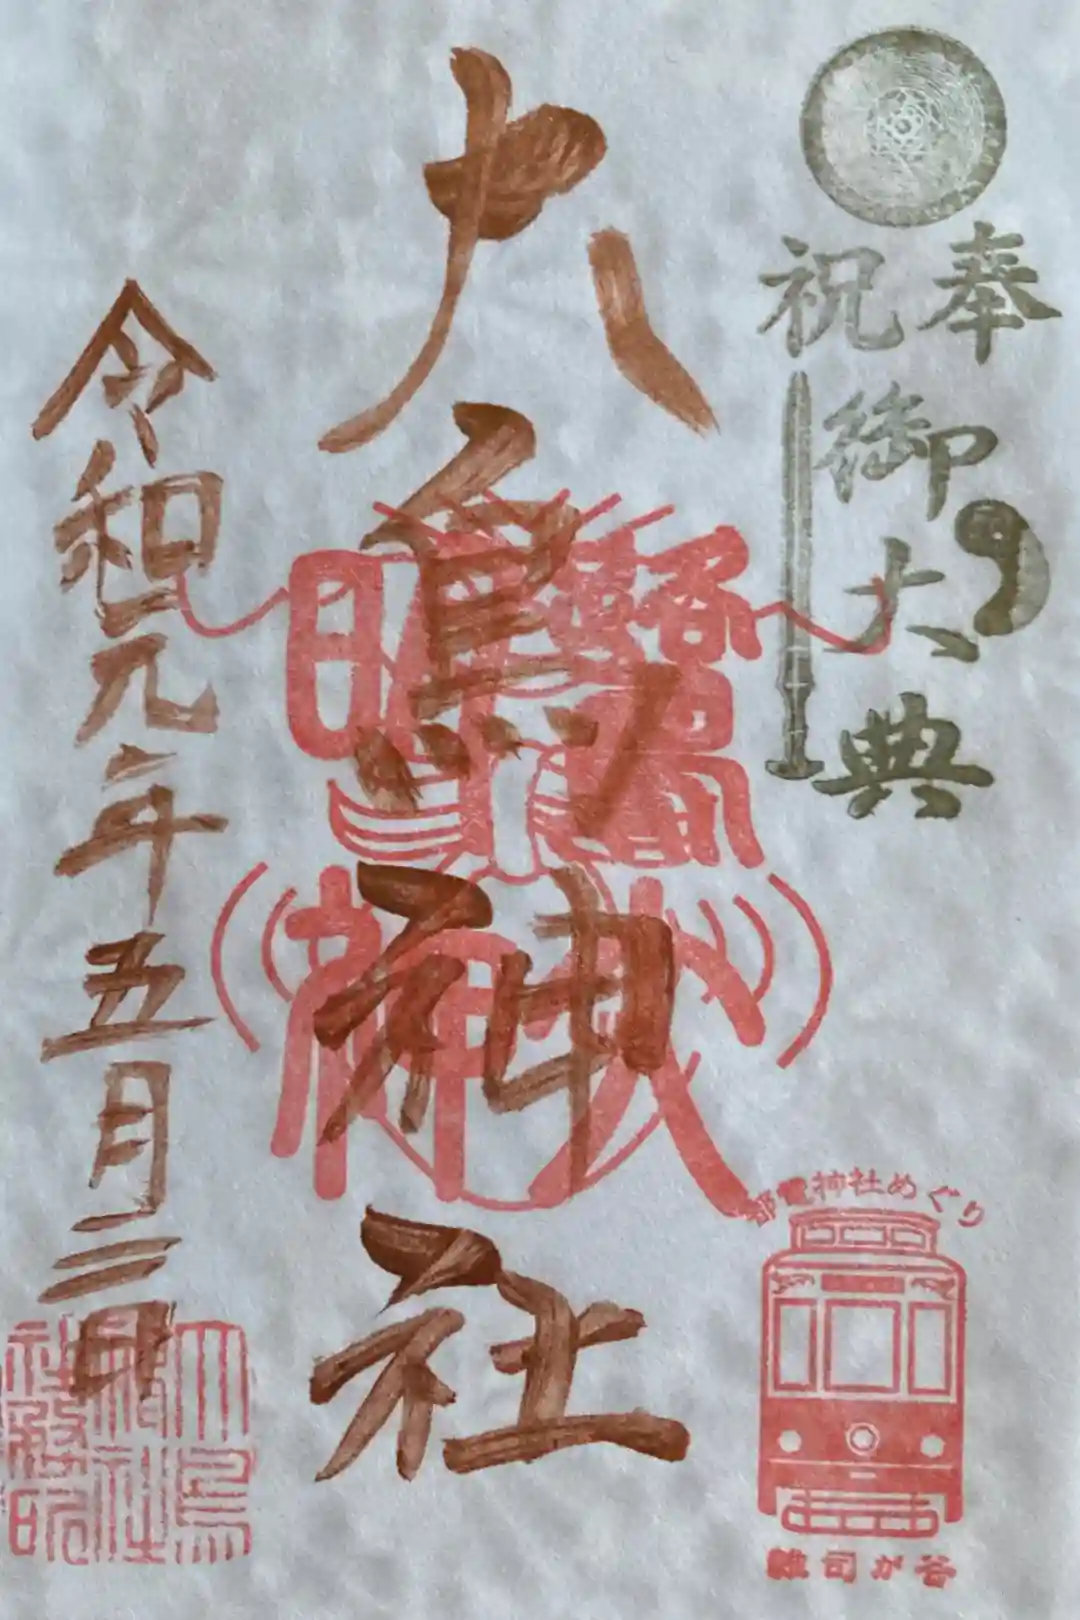 奉祝
御大典
大鳥神社
令和元年五月二日
大鳥
神社
社務印
都電神社めぐり
雑司が谷